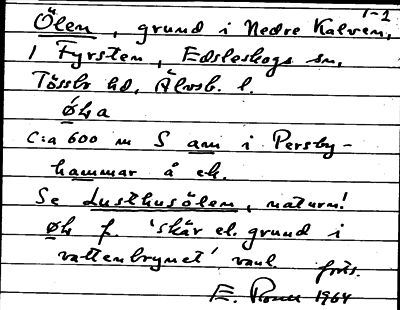 1-2
Ölen, grund i Nedre Kalven,
i Fyrsten, Edsleskogs sn,
Tössbo hd, Älvsb. l.
øḷa
C:a 600 m S am i Persby-
hammar å ek.
Se Lusthusölen, naturn!
øḷ f. 'skär el. grund i
vattenbrynet' vanl. forts.
E. 1964